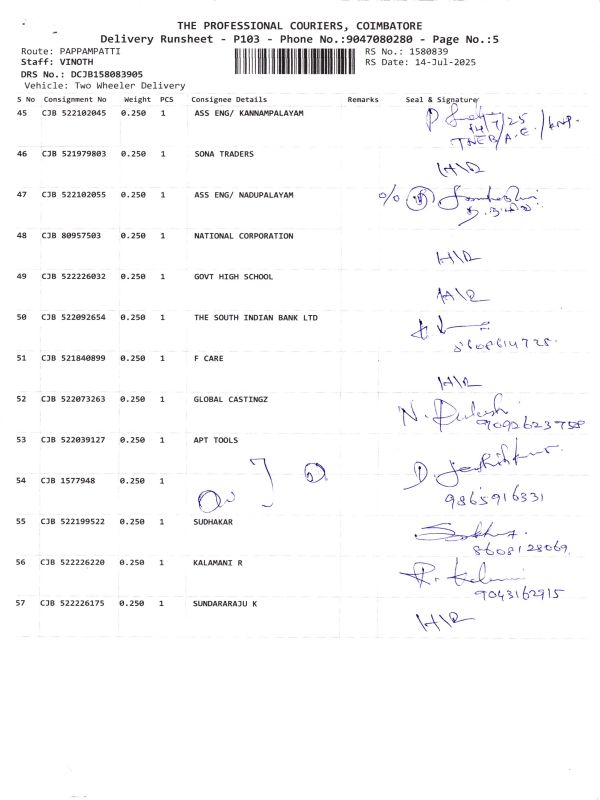 THE PROFESSIONAL COURIERS, COIMBATORE
Delivery Runsheet - P103 - Phone No.:9047080280 - Page No.:5
Route: PAPPAMPATTI RS No.: 1580839
Staff: VINOTH RS Date: 14-Jul-2025
DRS No.: DCJB158083905
Vehicle: Two Wheeler Delivery
S No Consignment No Weight PCS Consignee Details Remarks Seal & Signature
45 CJB 522102045 0.250 1 ASS ENG/ KANNAMPALAYAM
14/7/25
TNEB/A.E/KNP.
46 CJB 521979803 0.250 1 SONA TRADERS
H\R
47 CJB 522102055 0.250 1 ASS ENG/ NADUPALAYAM
48 CJB 80957503 0.250 1 NATIONAL CORPORATION
H\R
49 CJB 522226032 0.250 1 GOVT HIGH SCHOOL
H\R
50 CJB 522092654 0.250 1 THE SOUTH INDIAN BANK LTD
51 CJB 521840899 0.250 1 F CARE
H\R
52 CJB 522073263 0.250 1 GLOBAL CASTINGZ
9092623758
53 CJB 522039127 0.250 1 APT TOOLS
54 CJB 1577948 0.250 1
9865916331
55 CJB 522199522 0.250 1 SUDHAKAR
8608128069
56 CJB 522226220 0.250 1 KALAMANI R
9043162915
57 CJB 522226175 0.250 1 SUNDARARAJU K
H\R